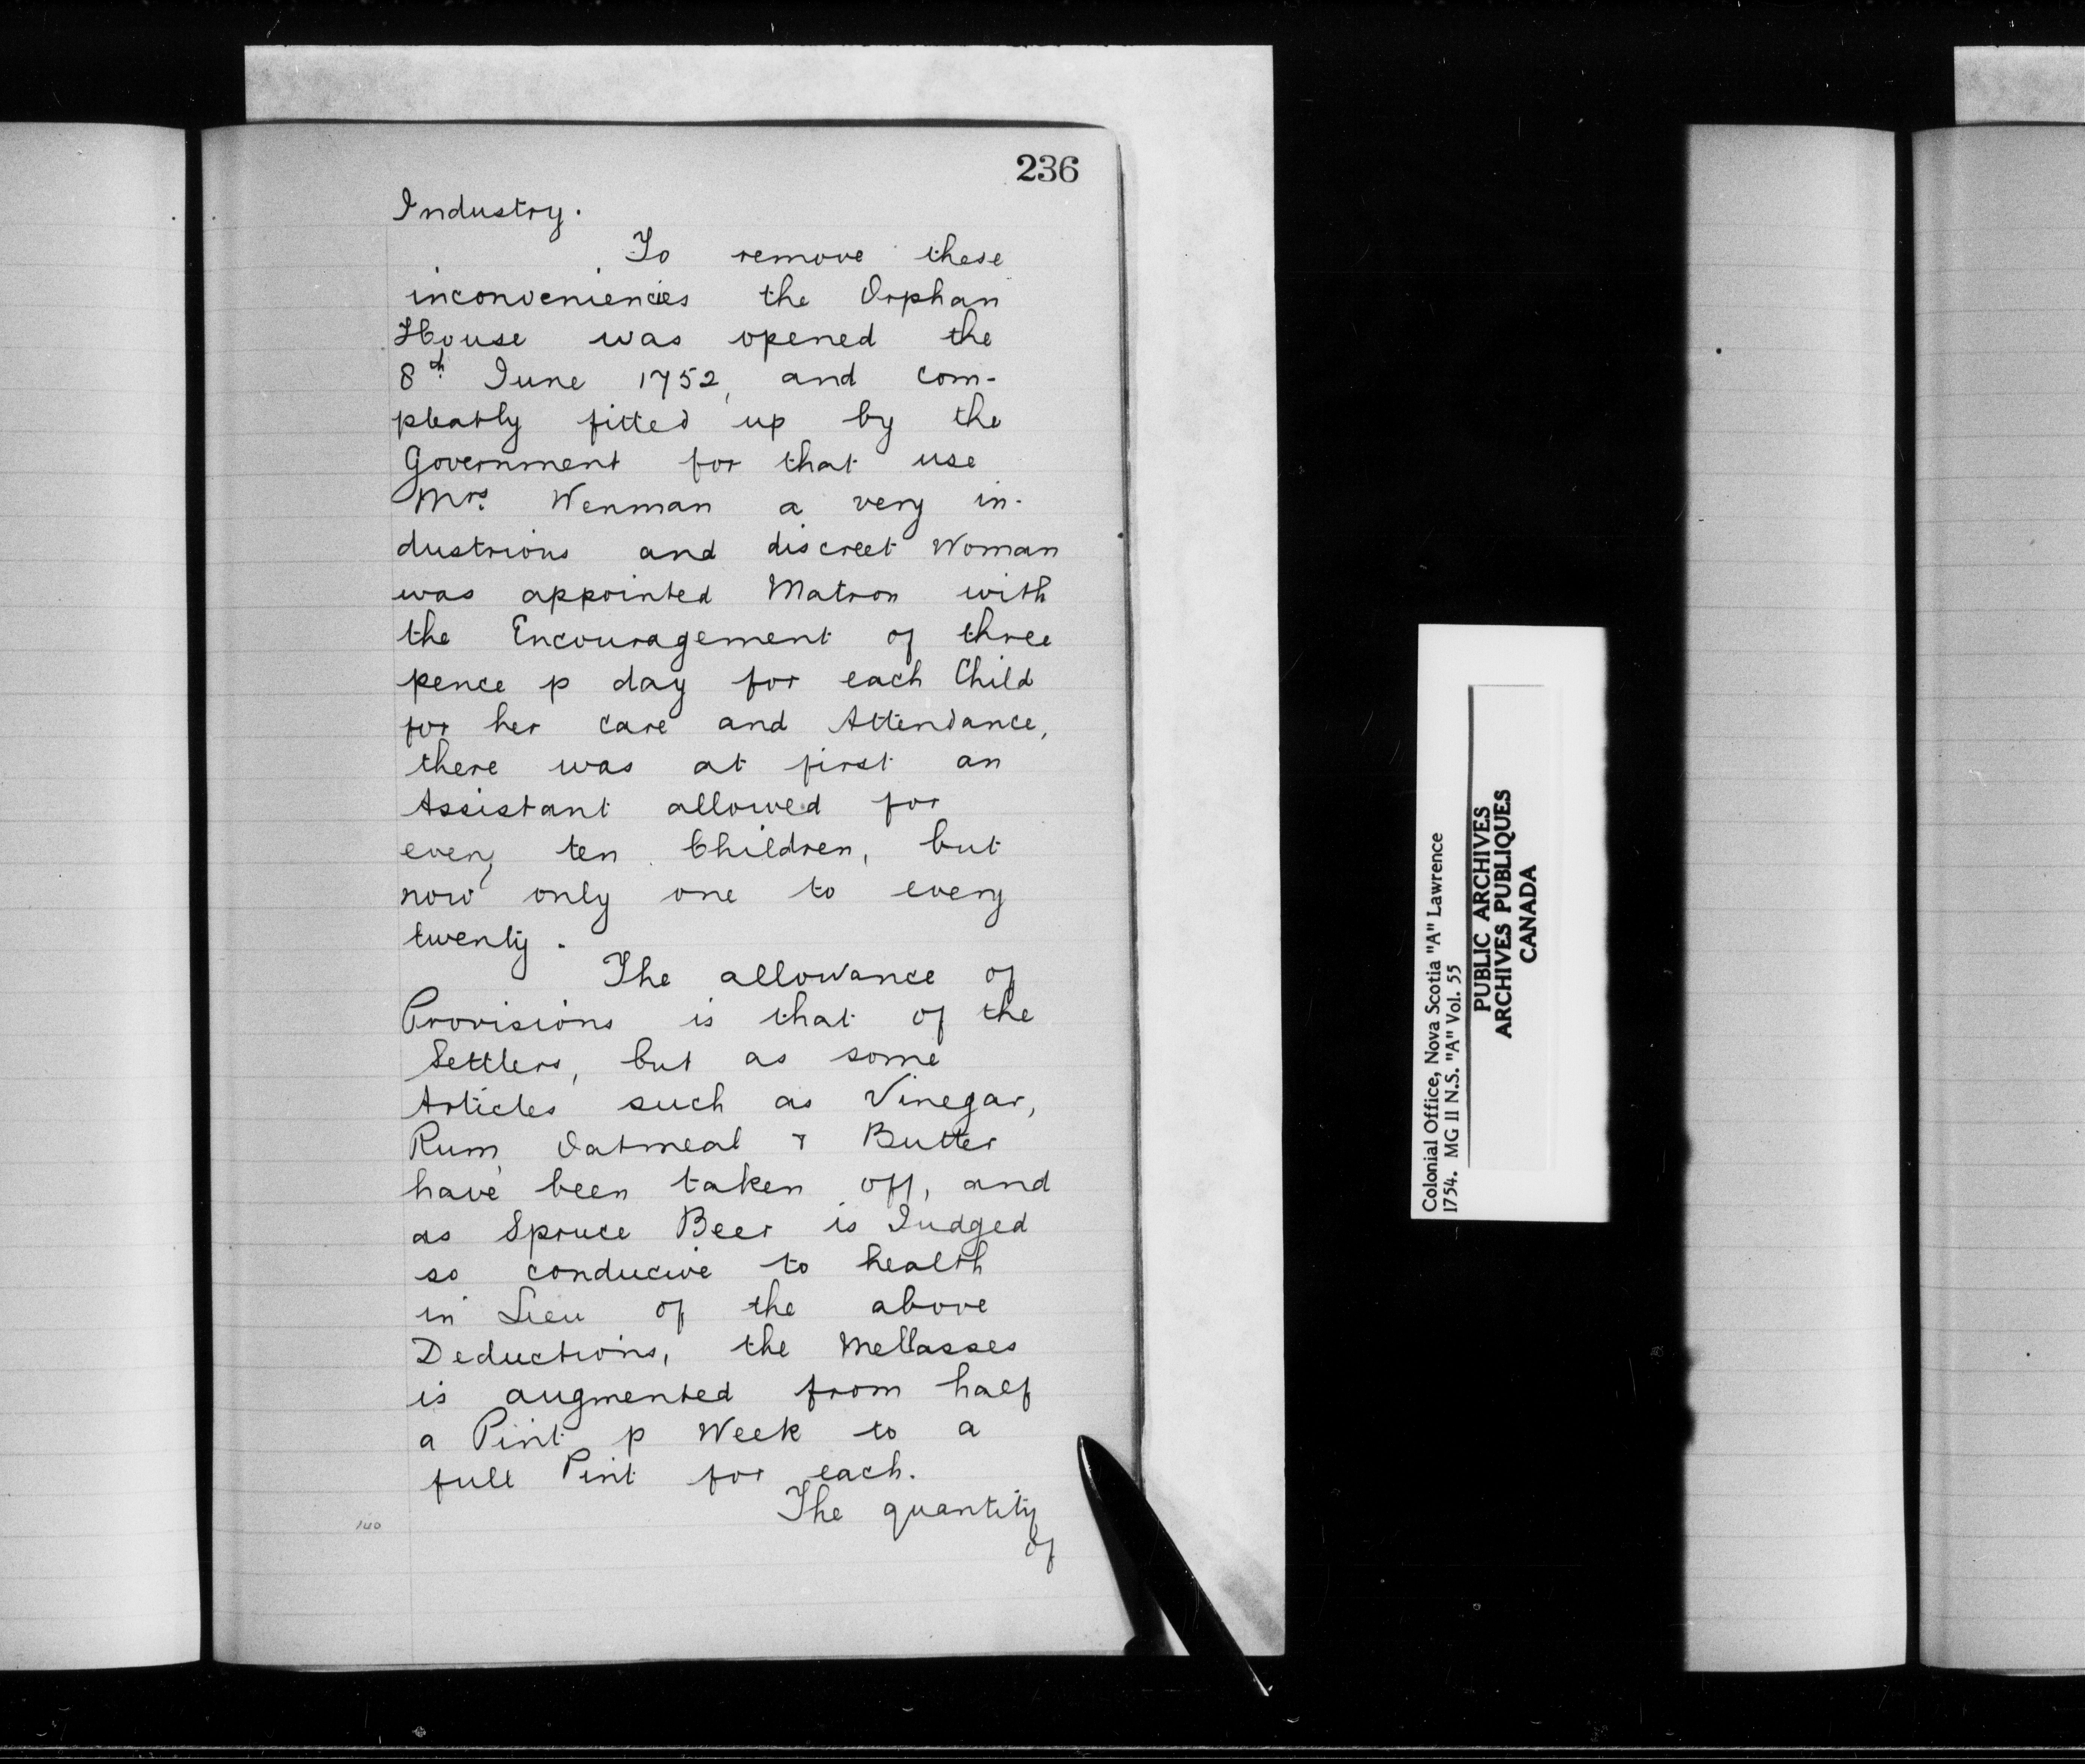 236
Industry.
To remove these
inconveniencies the Orphan
House was opened the
8th June 1752, and com-
pleatly fitted up by the
Government for that use
Mrs. Wenman a very in-
dustrious and discreet Woman
was appointed Matron with
the Encouragement of three
pence p day for each Child
for her care and Attendance,
there was at first an
Assistant allowed for
every ten Children, but
now only one to every
twenty.
The allowance of
Provisions is that of the
Settlers, but as some
Articles such as Vinegar,
Rum, Oatmeal & Butter
have been taken off, and
as Spruce Beer is Judged
so conducive to health
in Lieu of the above
Deductions, the Mellasses
is augmented from half
a Pint p Week to a
full Pint for each.
The quantity
of
140
Colonial Office, Nova Scotia "A" Lawrence
1754. MG 11 N.S. "A" Vol. 55
PUBLIC ARCHIVES
ARCHIVES PUBLIQUES
CANADA